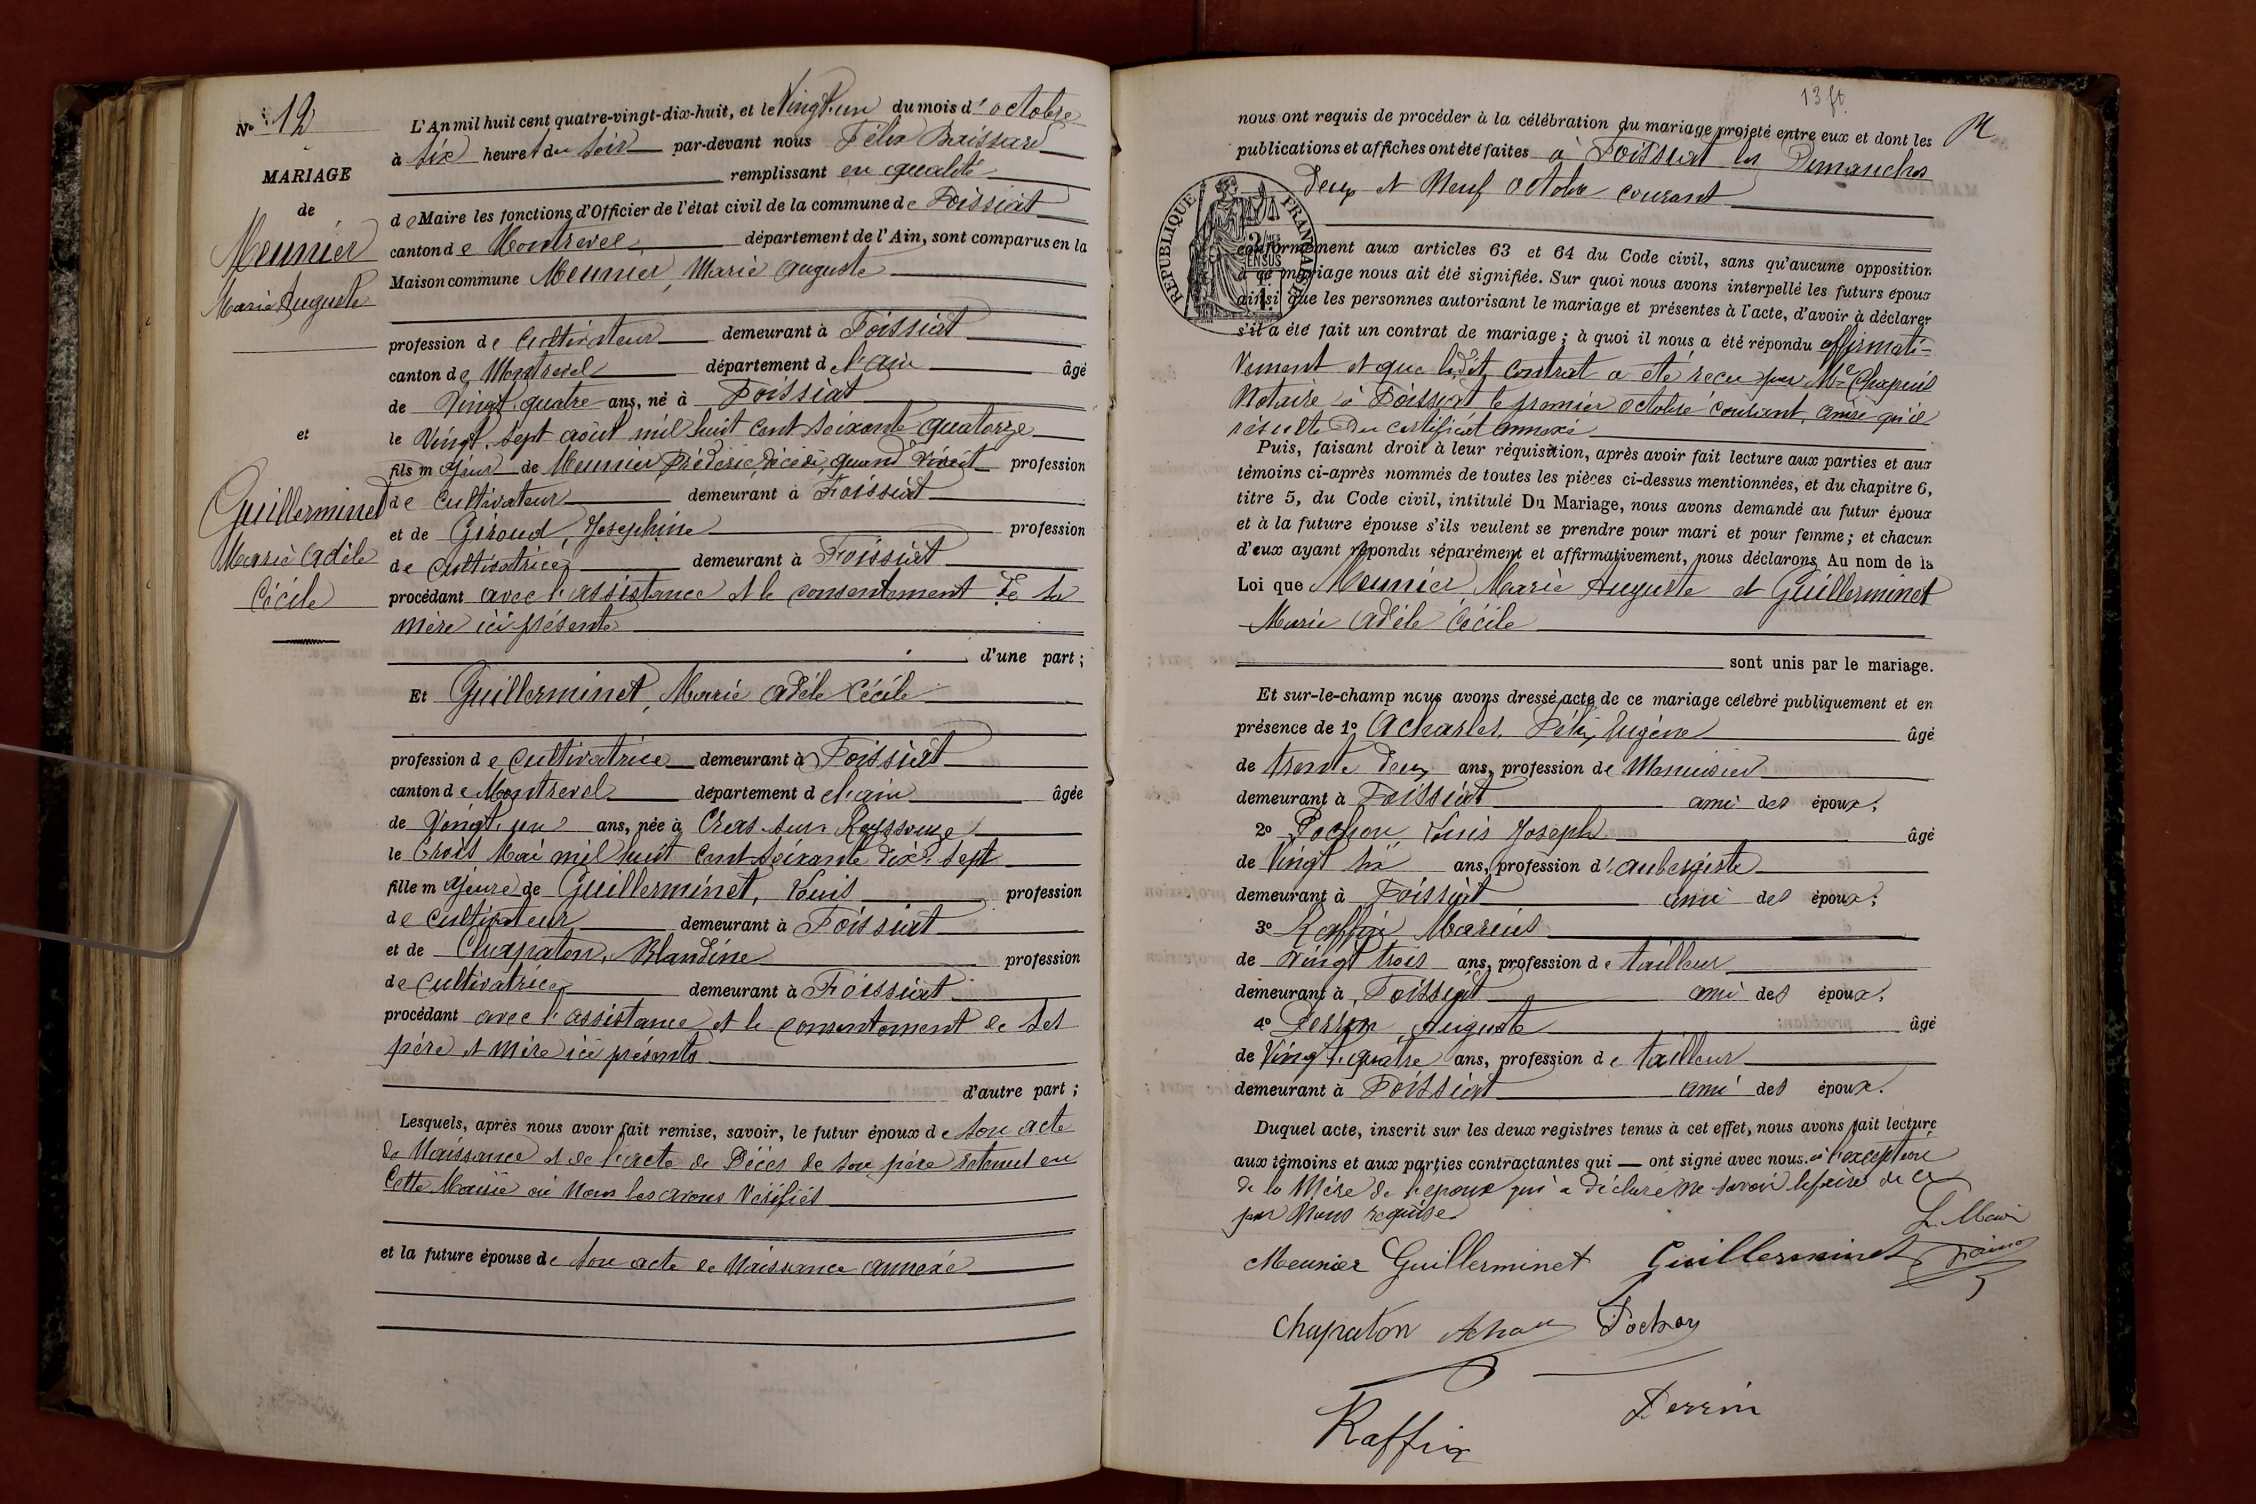 N° 12
MARIAGE
de
Meunier
Marie Auguste
et
Guillerminet
Marie Adèle
Cécile
L'An mil huit cent quatre-vingt-dix-huit, et le Vingt-un du mois d'octobre
à six heures du soir par-devant nous Félix
remplissant en qualité
de Maire les fonctions d'Officier de l'état civil de la commune de Foissiat
canton de Montrevel département de l'Ain, sont comparus en la
Maison commune Meunier, Marie Auguste
profession de Cultivateur demeurant à Foissiat
canton de Montrevel département de l'ain âgé
de Vingt quatre ans, né à Foissiat
le Vingt-sept août mil huit cent soixante quatorze
fils majeur de Meunier Frédéric, décédé, quand vivait profession
de cultivateur demeurant à Foissiat
et de Giroud, Josephine profession
de cultivatrice demeurant à Foissiat
procédant avec l'assistance et le consentement de sa
mère ici présente
d'une part ;
Et Guillerminet, Marie Adèle Cécile
profession de cultivatrice demeurant à Foissiat
canton de Montrevel département de l'ain âgée
de Vingt-un ans, née à Cras-sur-Reyssouze
le trois Mai mil huit cent soixante dix-sept
fille majeure de Guillerminet, Louis profession
de cultivateur demeurant à Foissiat
et de Chapaton, Blandine profession
de cultivatrice demeurant à Foissiat
procédant avec l'assistance et le consentement de ses
père et mère ici présents
d'autre part ;
Lesquels, après nous avoir fait remise, savoir, le futur époux de son acte
de Naissance et de l'acte de Décès de son père retenus en
cette Mairie où nous les avons vérifiés
et la future épouse de son acte de Naissance annexé
13 ft
nous ont requis de procéder à la célébration du mariage projeté entre eux et dont les
publications et affiches ont été faites à Foissiat les Dimanches
deux et Neuf octobre courant
RÉPUBLIQUE FRANÇAISE
conformément aux articles 63 et 64 du Code civil, sans qu'aucune opposition
à ce mariage nous ait été signifiée. Sur quoi nous avons interpellé les futurs époux
ainsi que les personnes autorisant le mariage et présentes à l'acte, d'avoir à déclarer
s'il a été fait un contrat de mariage ; à quoi il nous a été répondu affirmati-
vement et que ledit contrat a été reçu par Me Chapuis
Notaire à Foissiat le premier octobre courant, ainsi qu'il
résulte du certificat annexé
Puis, faisant droit à leur réquisition, après avoir fait lecture aux parties et aux
témoins ci-après nommés de toutes les pièces ci-dessus mentionnées, et du chapitre 6,
titre 5, du Code civil, intitulé Du Mariage, nous avons demandé au futur époux
et à la future épouse s'ils veulent se prendre pour mari et pour femme ; et chacun
d'eux ayant répondu séparément et affirmativement, nous déclarons Au nom de la
Loi que Meunier, Marie Auguste et Guillerminet
Marie Adèle Cécile
sont unis par le mariage.
Et sur-le-champ nous avons dressé acte de ce mariage célébré publiquement et en
présence de 1° Acharles, Félix Eugène âgé
de trente deux ans, profession de Menuisier
demeurant à Foissiat ami des époux ;
2° Pochon, Louis Joseph âgé
de Vingt six ans, profession d'aubergiste
demeurant à Foissiat ami des époux ;
3° Raffin Marius
de vingt trois ans, profession de tailleur
demeurant à Foissiat ami des époux,
4° Perrin, Auguste âgé
de Vingt-quatre ans, profession de tailleur
demeurant à Foissiat ami des époux.
Duquel acte, inscrit sur les deux registres tenus à cet effet, nous avons fait lecture
aux témoins et aux parties contractantes qui — ont signé avec nous à l'exception
de la Mère de l'époux qui a déclaré ne savoir le faire de ce
par Nous requise
Le Maire
Meunier Guillerminet Guillerminet
Chapaton Pochon
Raffin Perrin